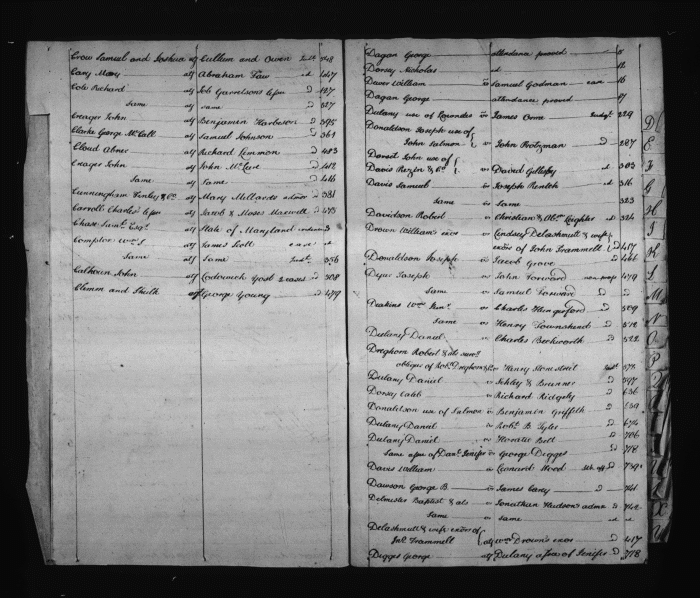 Crow Samuel and Joshua agt Cullum and Owen Judt 348
Cary Mary agt Abraham Faw ed 147
Cole Richard agt Job Garrison's Exr D 127
Same agt Same D 327
Creager John agt Benjamin Harbeson D 395
Clarke George McCall agt Samuel Johnson D 361
Cloud Abner agt Richard Lemmon D 403
Creager John agt John McLure D 412
Same agt Same D 416
Cunningham Finley & Co agt Mary Millards D 381
Carroll Charles agt Jacob & Moses Maxwell D 473
Chase Saml Esqr agt State of Maryland 3
Compton Wm S agt James Scott case
Same agt Same Judt 356
Calhoun John agt Coderick Gost 2 cases D 308
Clemm and Shulk agt George Young D 479
Dagan George attendance proved 8
Dorsey Nicholas 12
Duver William vs Samuel Godman case 16
Dagan George attendance proved 17
Dulany use of Lowndes vs James Orme Judgt 229
Donaldson Joseph use of
John Salmon vs John Protzman D 287
Dorsey John use of
Davis Rezin & Co vs David Gillespy 303
Davis Samuel vs Joseph Rentch 316
Same vs Same 323
Davidson Robert vs Christian & Abm Leighter 324
Drown William's exor vs Lindsey Delashmutt & wife
exors of John Trammell D 417
Donaldson Joseph vs Jacob Grove D 466
Dyer Joseph vs John Forward 479
Same vs Samuel Forward D
Deakins Wm Junr vs Charles Hungerford D 509
Same vs Henry Townshend D 512
Dulany Daniel vs Charles Beckworth D 522
Dreghorn Robert
obligee of Robt Dreghorn vs Henry Stonestreet Judt 577
Dulany Daniel vs Schley & Brunner D 597
Dorsey Caleb vs Richard Ridgely D 636
Donaldson use of Salmon vs Benjamin Griffith D 659
Dulany Daniel vs Robt B Tyler D 674
Dulany Daniel vs Horatio Belt D 706
Same of Danl Jenifer vs George Digges D 778
Davis William vs Leonard Hood 739
Dawson George B. vs James Carey D 741
Delmister Baptist & als vs Jonathan Hudsons admr D 742
Same vs Same
Delashmutt & wife exors of
Jno Trammell agt Wm Drown's exor D 417
Digges George agt Dulany of Jenifer D 778
D
E
F
G
H
I
K
L
M
N
O
P